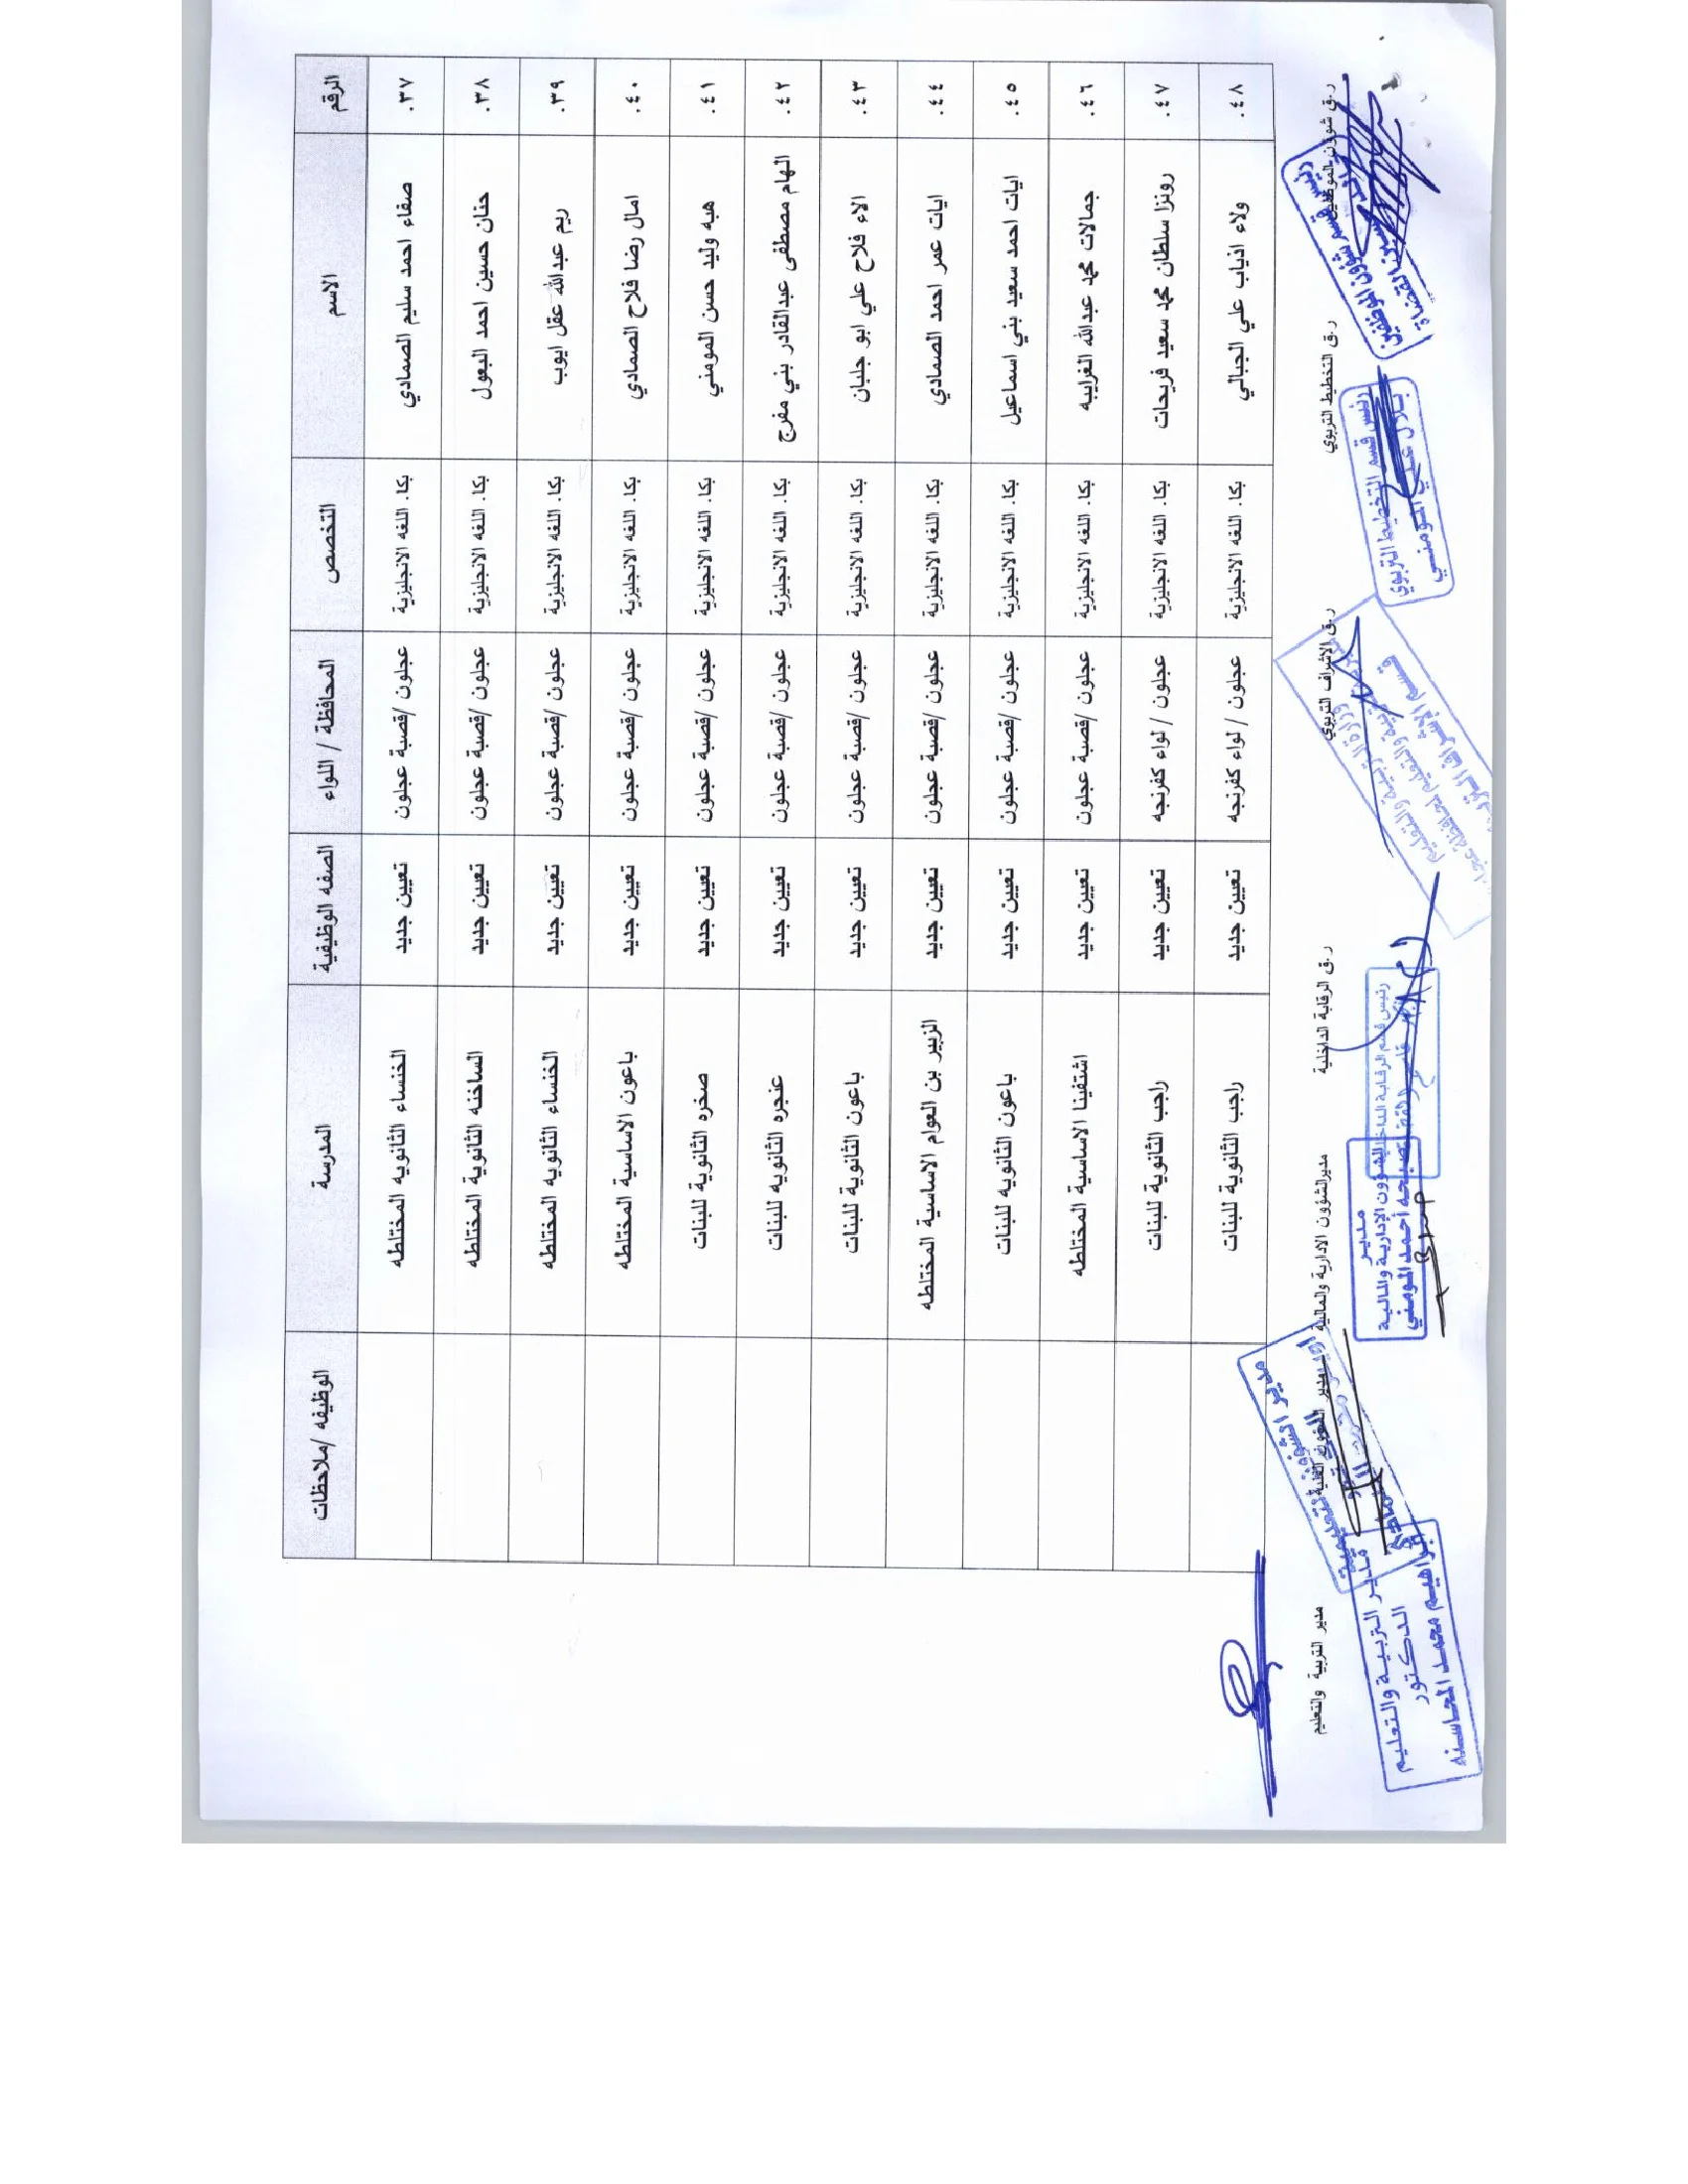 الرقم الاسم التخصص المحافظة / اللواء الصفه الوظيفية المدرسة الوظيفه /ملاحظات
٣٧. صفاء احمد سليم الصمادي بكا. اللغه الانجليزية عجلون /قصبة عجلون تعيين جديد الخنساء الثانويه المختلطه
٣٨. حنان حسين احمد البعول بكا. اللغه الانجليزية عجلون /قصبة عجلون تعيين جديد الساخنه الثانوية المختلطه
٣٩. ريم عبدالله عقل ايوب بكا. اللغه الانجليزية عجلون /قصبة عجلون تعيين جديد الخنساء الثانويه المختلطه
٤٠. امال رضا فلاح الصمادي بكا. اللغه الانجليزية عجلون /قصبة عجلون تعيين جديد باعون الاساسية المختلطه
٤١. هبه وليد حسن المومني بكا. اللغه الانجليزية عجلون /قصبة عجلون تعيين جديد صخره الثانوية للبنات
٤٢. الهام مصطفى عبدالقادر بني مفرج بكا. اللغه الانجليزية عجلون /قصبة عجلون تعيين جديد عنجره الثانويه للبنات
٤٣. الاء فلاح علي ابو جلبان بكا. اللغه الانجليزية عجلون /قصبة عجلون تعيين جديد باعون الثانوية للبنات
٤٤. ايات عمر احمد الصمادي بكا. اللغه الانجليزية عجلون /قصبة عجلون تعيين جديد الزبير بن العوام الاساسية المختلطه
٤٥. ايات احمد سعيد بني اسماعيل بكا. اللغه الانجليزية عجلون /قصبة عجلون تعيين جديد باعون الثانويه للبنات
٤٦. جمالات محمد عبدالله الغرايبه بكا. اللغه الانجليزية عجلون /قصبة عجلون تعيين جديد اشتفينا الاساسية المختلطه
٤٧. رونزا سلطان محمد سعيد فريحات بكا. اللغه الانجليزية عجلون / لواء كفرنجه تعيين جديد راجب الثانوية للبنات
٤٨. ولاء اذياب علي الجبالي بكا. اللغه الانجليزية عجلون / لواء كفرنجه تعيين جديد راجب الثانوية للبنات
ر.ق شؤون الموظفين ر.ق التخطيط التربوي ر.ق الاشراف التربوي ر.ق الرقابة الداخلية مدير الشؤون الادارية والمالية مدير الشؤون مدير التربية والتعليم
رئيس قسم شؤون الموظفين
القضاة
رئيس قسم التخطيط التربوي
بلال علي المومني
وزارة التربية والتعليم
قسم الإشراف التربوي
رئيس قسم الرقابة الداخلية
مدير
الشؤون الإدارية والمالية
أحمد المومني
مدير الشؤون التعليمية
مدير التربية والتعليم
الدكتور
ابراهيم محمد المحاسنه